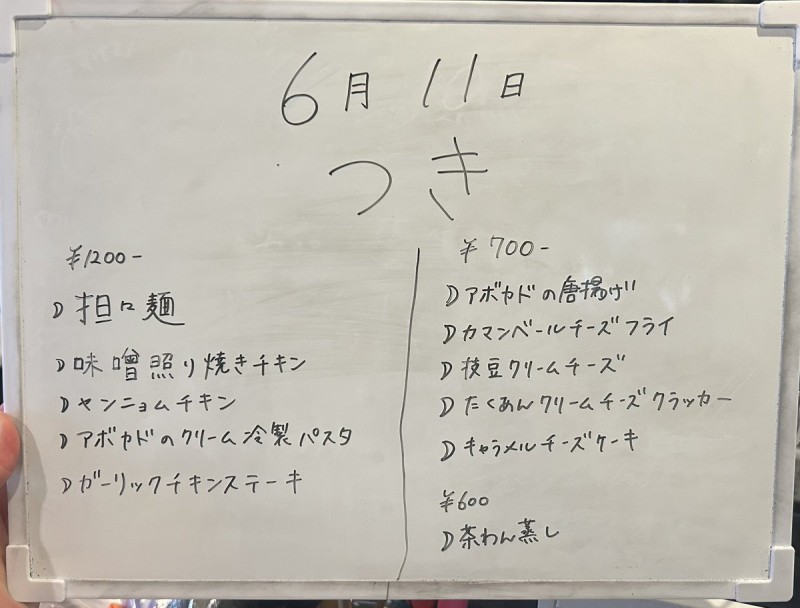 6月11日
つき
¥1200-
☽担々麺
☽味噌照り焼きチキン
☽ヤンニョムチキン
☽アボカドのクリーム冷製パスタ
☽ガーリックチキンステーキ
¥700-
☽アボカドの唐揚げ
☽カマンベールチーズフライ
☽枝豆クリームチーズ
☽たくあんクリームチーズクラッカー
☽キャラメルチーズケーキ
¥600
☽茶わん蒸し